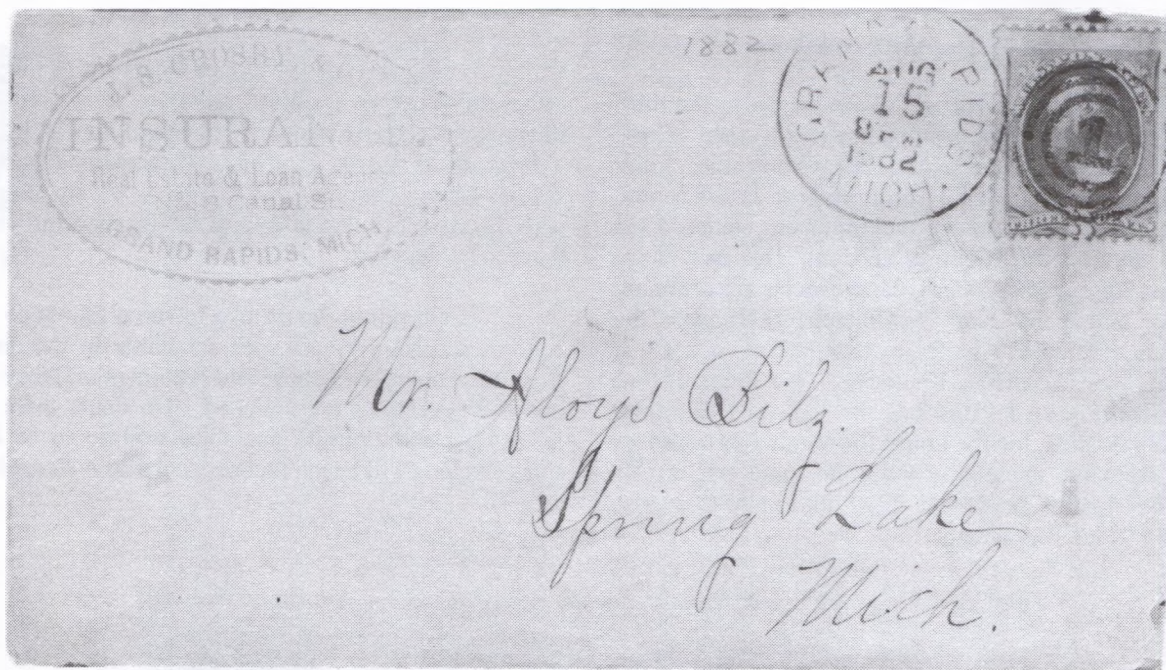 J. S. CROSBY,
INSURANCE.
Real Estate & Loan Agency
Canal St.
GRAND RAPIDS, MICH
1882
GRAND RAPIDS
AUG
15
8
1882
MICH.
1
Mr. Aloys Bilz.
Spring Lake
Mich.